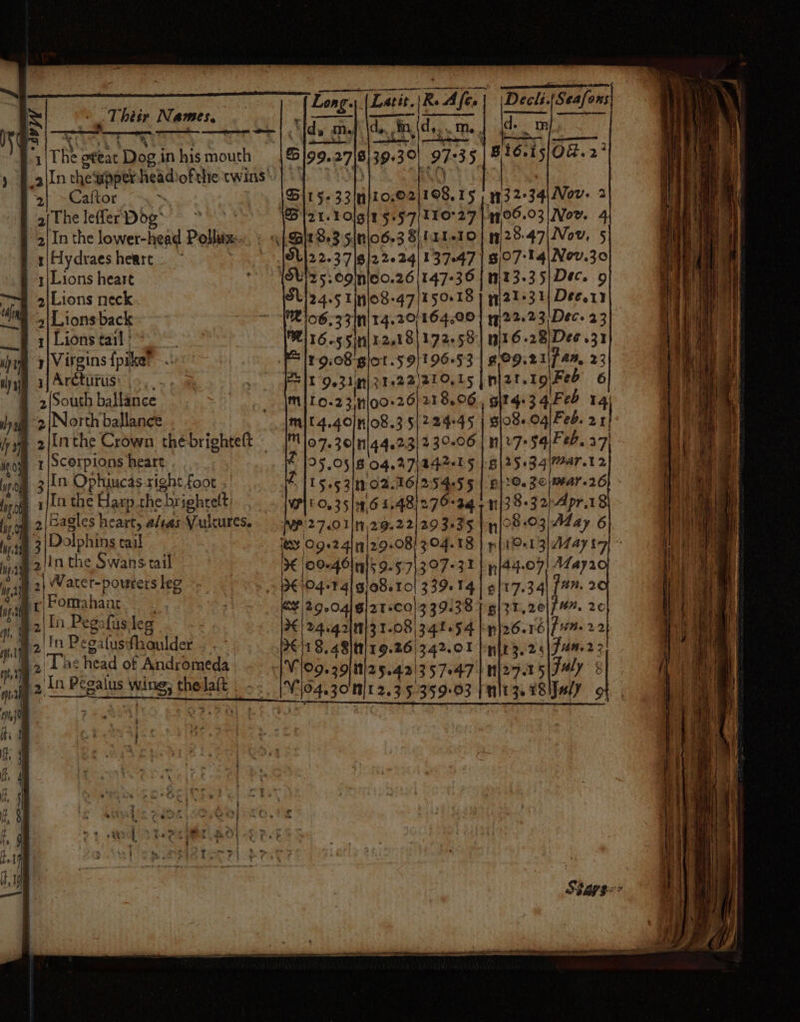 Their Names. | Long. | Latit. | R. Aſc. | Decli. | Seaſons
d. m. | d. m. | d. m. | d. m.
1 The great Dog in his mouth 99.27 s 39.30 97.35 s 16.15 Oct. 2
2 In the upper head of the twins
2 Caſtor 15.33 n 10.02 108.15 n 32.34 Nov. 2
2 The leſſer Dog 21.10 s 15.57 110.27 n 06.03 Nov. 4
2 In the lower-head Pollux 18.35 n 06.38 111.10 n 28.47 Nov. 5
1 Hydraes heart 22.37 s 22.24 137.47 s 07.14 Nov. 30
1 Lions heart 25.09 n 00.26 147.36 n 13.35 Dec. 9
2 Lions neck 24.51 n 08.47 150.18 n 21.31 Dec. 11
2 Lions back 06.33 n 14.20 164.00 n 22.23 Dec. 23
1 Lions tail 16.55 n 12.18 172.58 n 16.28 Dec. 31
1 Virgins ſpike 19.08 s 01.59 196.53 s 09.21 Jan. 23
1 Arcturus 19.31 n 31.22 210.15 n 21.19 Feb 6
2 South ballance 10.23 n 00.26 218.06 s 14.34 Feb 14
2 North ballance 14.40 n 08.35 224.45 s 08.04 Feb. 21
2 In the Crown the brighteſt 07.30 n 44.23 230.06 n 27.54 Feb. 27
1 Scorpions heart 05.05 s 04.27 242.15 s 25.34 Mar. 12
3 In Ophiucas right foot 15.53 n 02.16 254.55 s 20.30 Mar. 26
1 In the Harp the brighteſt 10.35 n 61.48 276.24 n 38.32 Apr. 18
2 Eagles heart, alias Vulcures. 27.01 n 29.22 293.35 n 08.03 May 6
3 Dolphins tail 09.24 n 29.08 304.18 n 10.13 May 17
2 In the Swans tail 00.46 n 59.57 307.31 n 44.07 May 20
2 Water-pourers leg 04.14 s 08.10 339.14 s 17.34 Jun. 20
1 Fomahant 29.04 s 21.00 339.38 s 31.20 Jun. 20
2 In Pegaſus leg 24.42 n 31.08 341.54 n 26.16 Jun. 22
2 In Pegaſus ſhoulder 18.48 n 19.26 342.01 n 13.25 Jun. 23
2 The head of Andromeda 09.39 n 25.42 357.47 n 27.15 July 8
2 In Pegaſus wing, the laſt 04.30 n 12.35 359.03 n 13.18 July 9
Stars